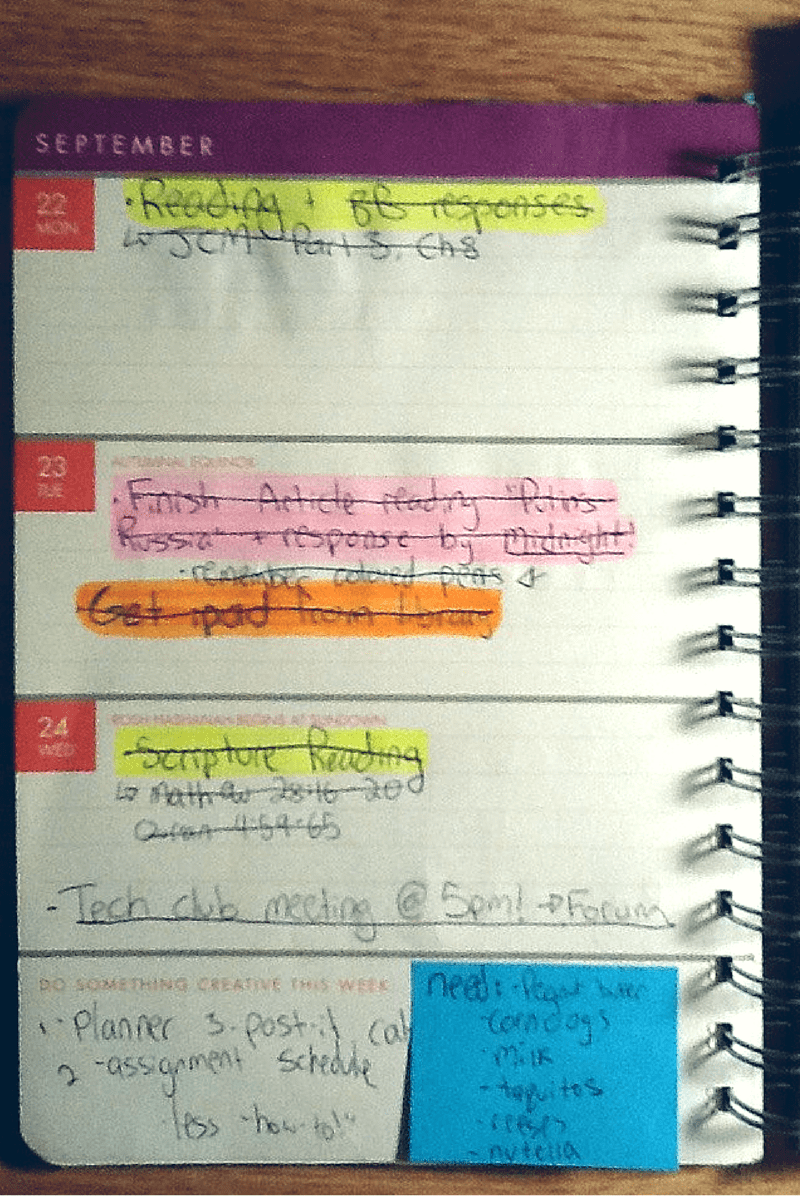 SEPTEMBER
22
MON
· Reading + BB responses
↳ JCM Part 3, Ch8
23
TUE
AUTUMNAL EQUINOX
· Finish Article reading "Putin's
Russia" + response by Midnight!
· remember colored pens
Get ipad from library
24
WED
ROSH HASHANAH BEGINS AT SUNDOWN
Scripture Reading
↳ Matthew 28:16-20
Quran 4:59-65
- Tech club meeting @ 5pm! → Forum
DO SOMETHING CREATIVE THIS WEEK:
1 · Planner 3. post-it
2 - assignment schedule
· less "how-to!"
need: -
- corndogs
· Milk
- taquitos
- reeses
- nutella